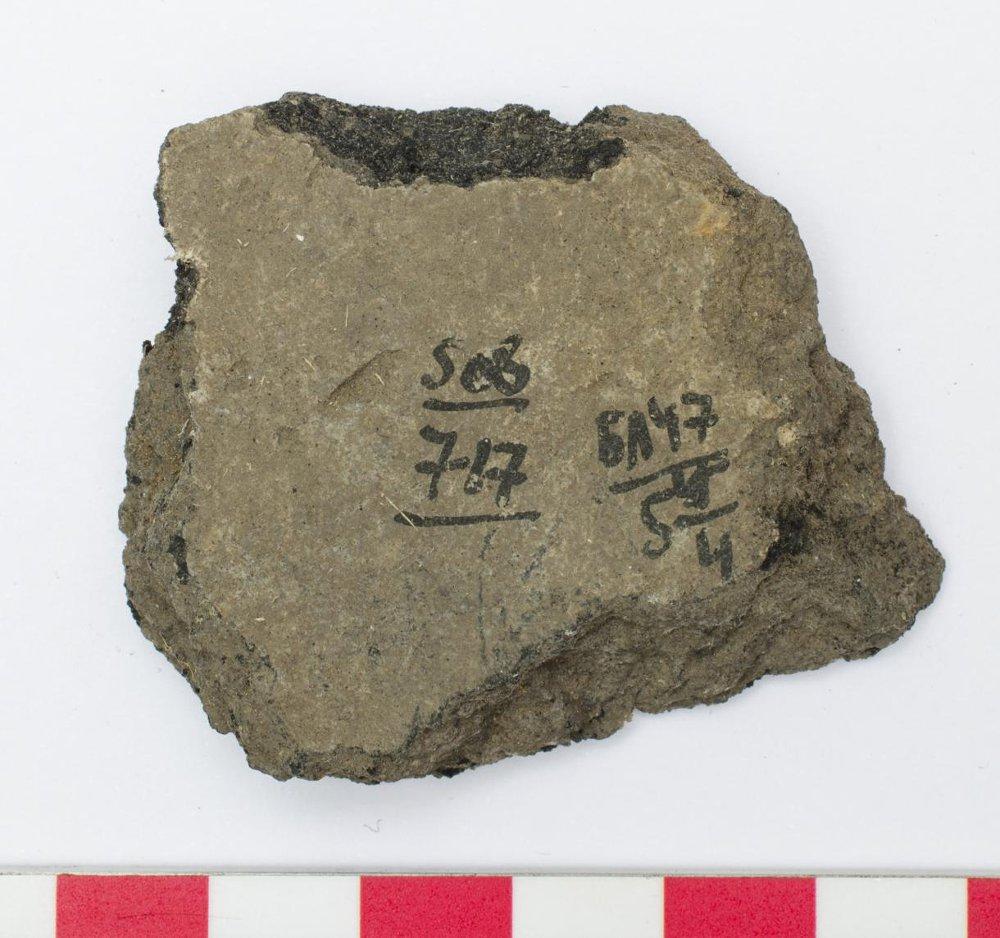 508
7-17
БЛ47
5 4
4